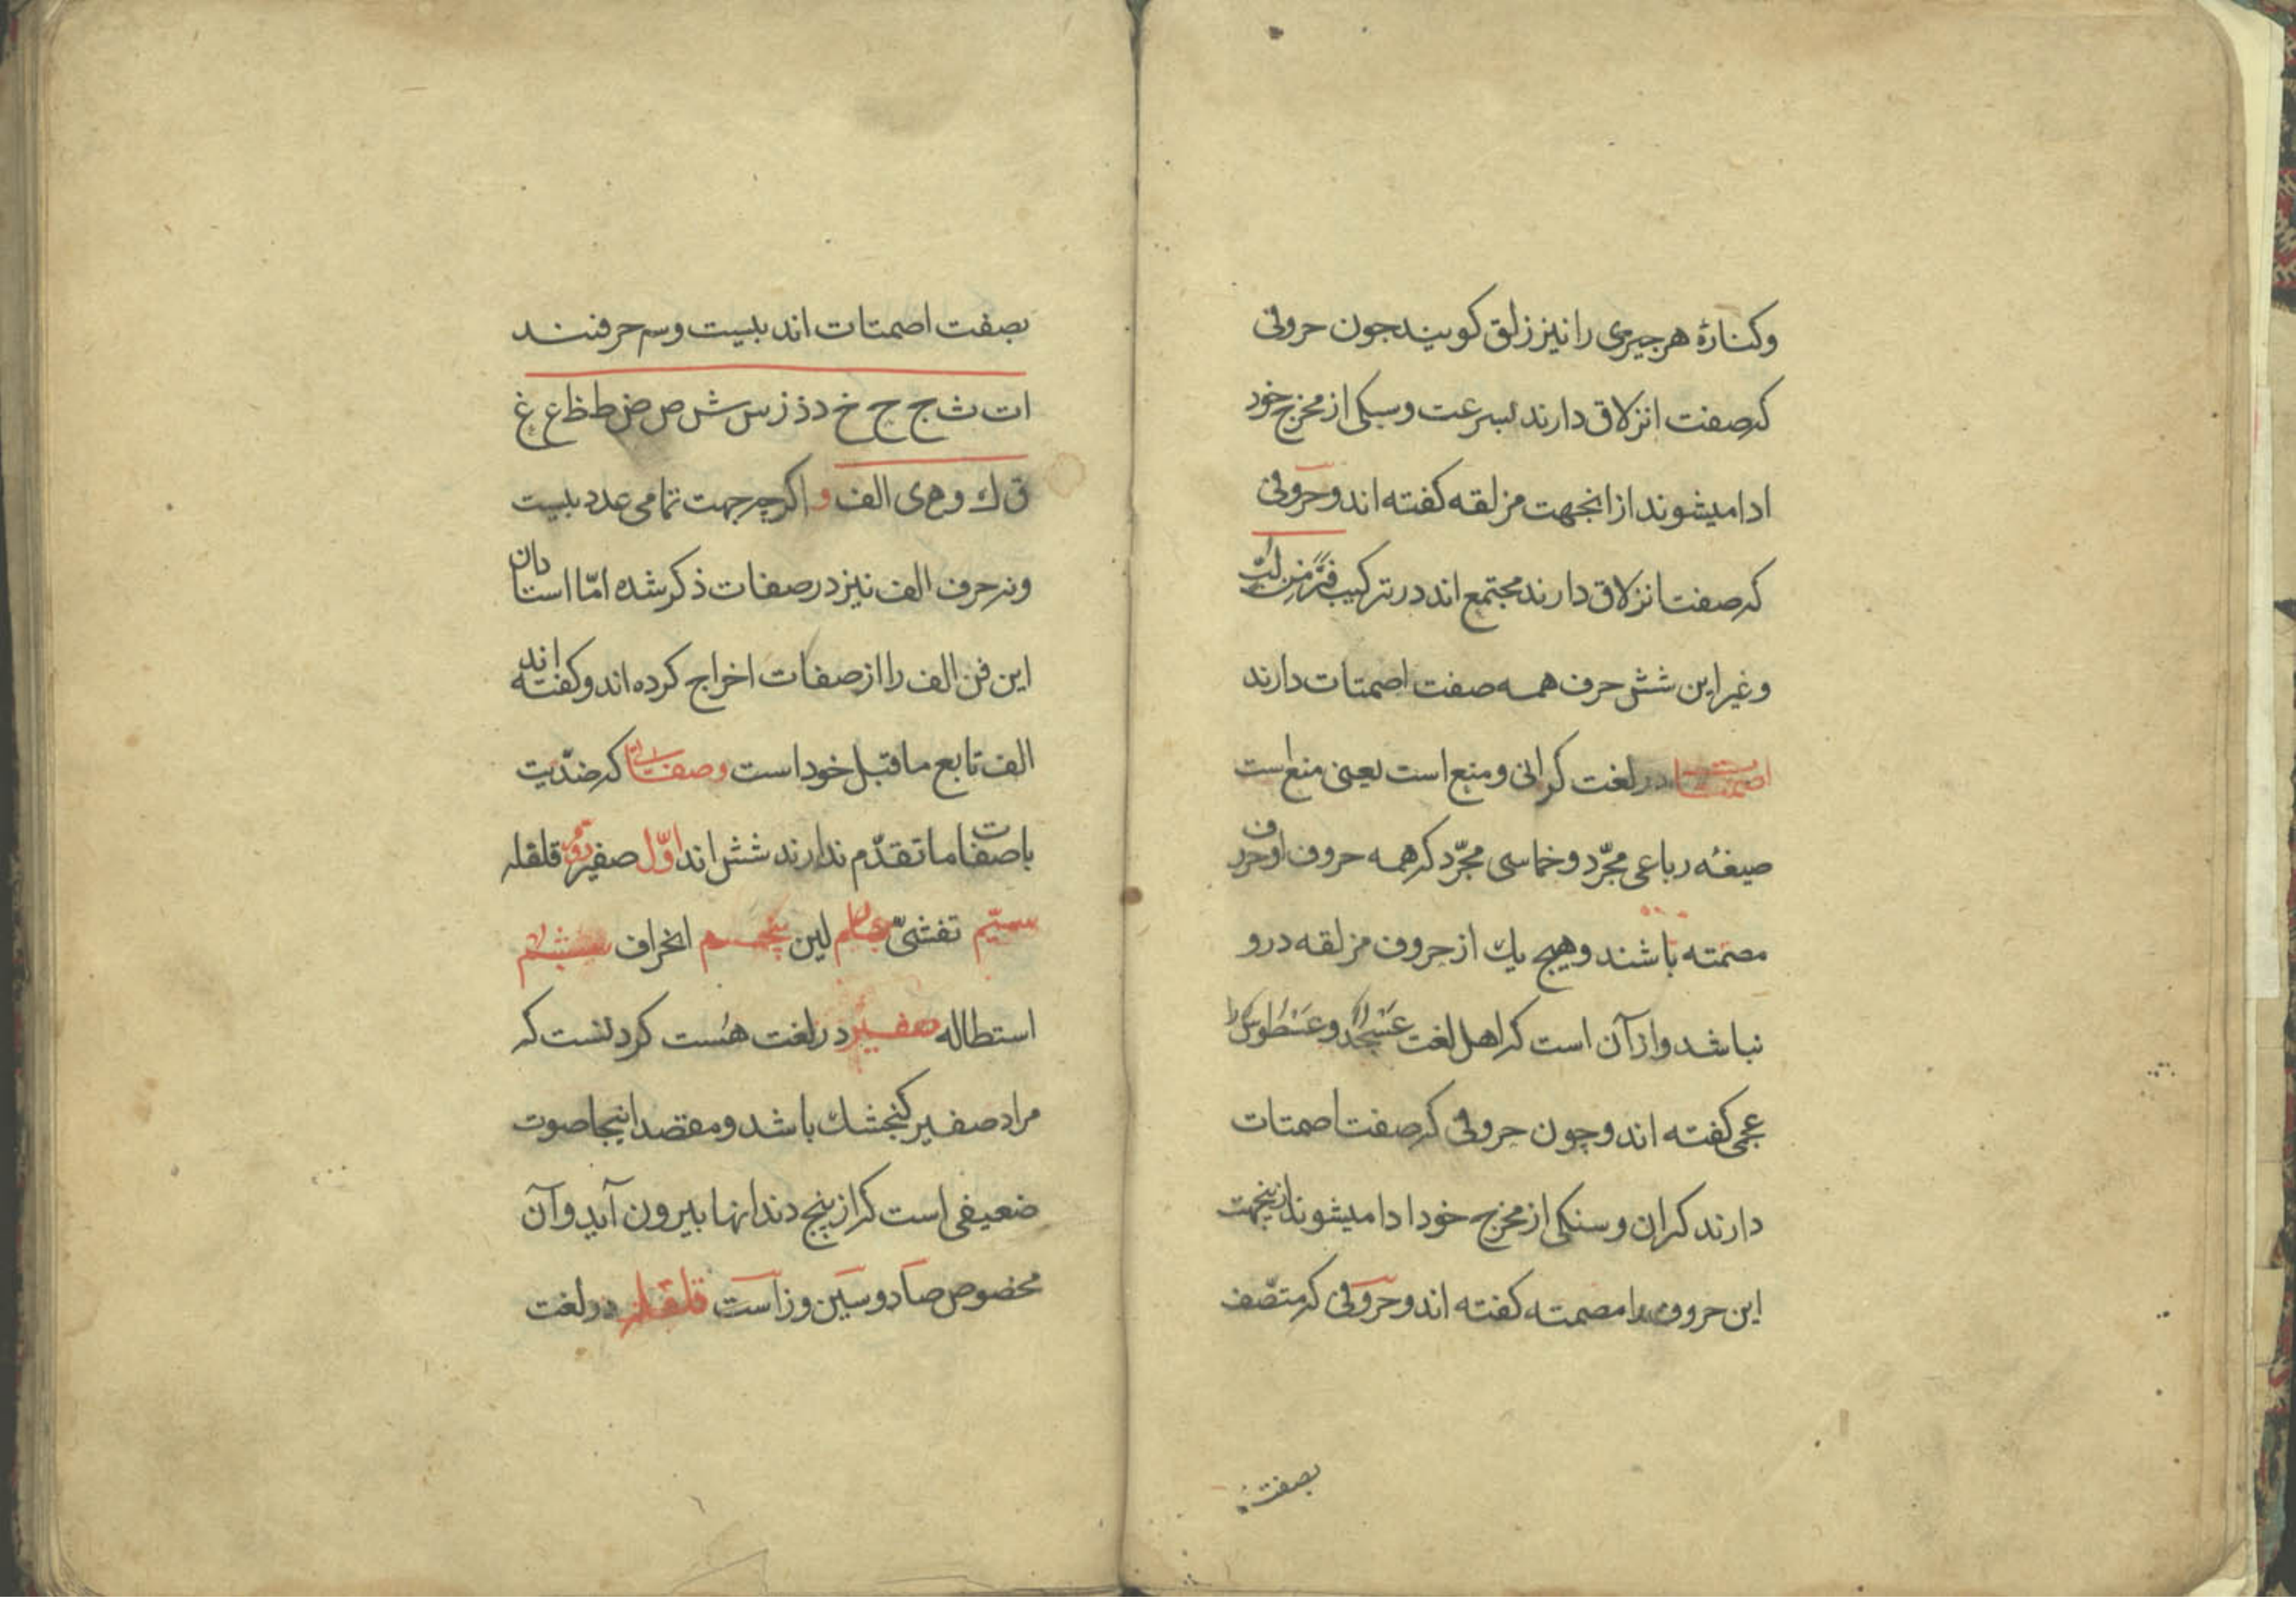 وکنارهٔ هر جیزی را نیز زلق کویند جون حروفی
که صفت انزلاق دارند بسرعت و سبکی از مخرج خود
ادا میشوند از انجهت مزلقه کفته اند و حروفی
که صفت انزلاق دارند مجتمع اند در ترکیب فَرَّ مِن لُبّ
و غیر این شش حرف همه صفت اصمتات دارند
اصمتات در لغت کرانی و منع است یعنی منع است
صیغهٔ رباعی مجرّد و خماسی مجرّد که همه حروف او حروف
مصمته باشند و هیچ یك از حروف مزلقه درو
نباشد و از آن است که اهل لغت عَسْجَد را و عَسَطُوس را
عجمی کفته اند و چون حروفی که صفت اصمتات
دارند کران و سنکی از مخرج خود ادا میشوند ازینجهت
این حروف را مصمته کفته اند و حروفی که متّصف
بصفت
بصفت اصمتات اند بیست و سه حرفند
ا ت ث ج ح خ د ذ ز س ش ص ض ط ظ ع غ
ق ك و ه ی الف و اکرچه جهت تمامی عدد بیست
و نه حرف الف نیز در صفات ذکر شده امّا استادان
این فن الف را از صفات اخراج کرده اند و کفته اند
الف تابع ماقبل خود است و صفاتی که ضدّیت
با صفات ما تقدّم ندارند شش اند اوّل صفیر دوم قلقله
سیّم تفشّی چهارم لین پنجم انحراف ششم
استطاله صفیر در لغت هُست کردنست که
مراد صفیر کنجشك باشد و مقصد اینجا صوت
ضعیفی است که از بینج دندانها بیرون آید و آن
مخصوص صاد و سین و زا است قلقله در لغت